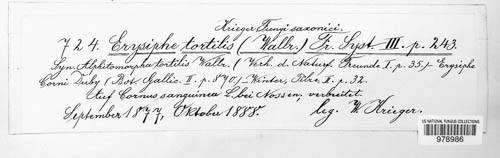 Krieger Fungi saxonici.
724. Erysiphe tortilis (Wallr.) Fr. Syst. III. p. 243.
Syn. Alphitomorpha tortilis Wallr. (Verh. d. Naturf. Freunde I. p. 35.) Erysiphe
Corni Duby (Bot. Gallic. II. p. 870.) Winter, Pilze II. p. 32.
Auf Cornus sanguinea L. bei Nossen, verbreitet.
September 1877, Oktober 1888. leg. W. Krieger.
US NATIONAL FUNGUS COLLECTIONS
978986